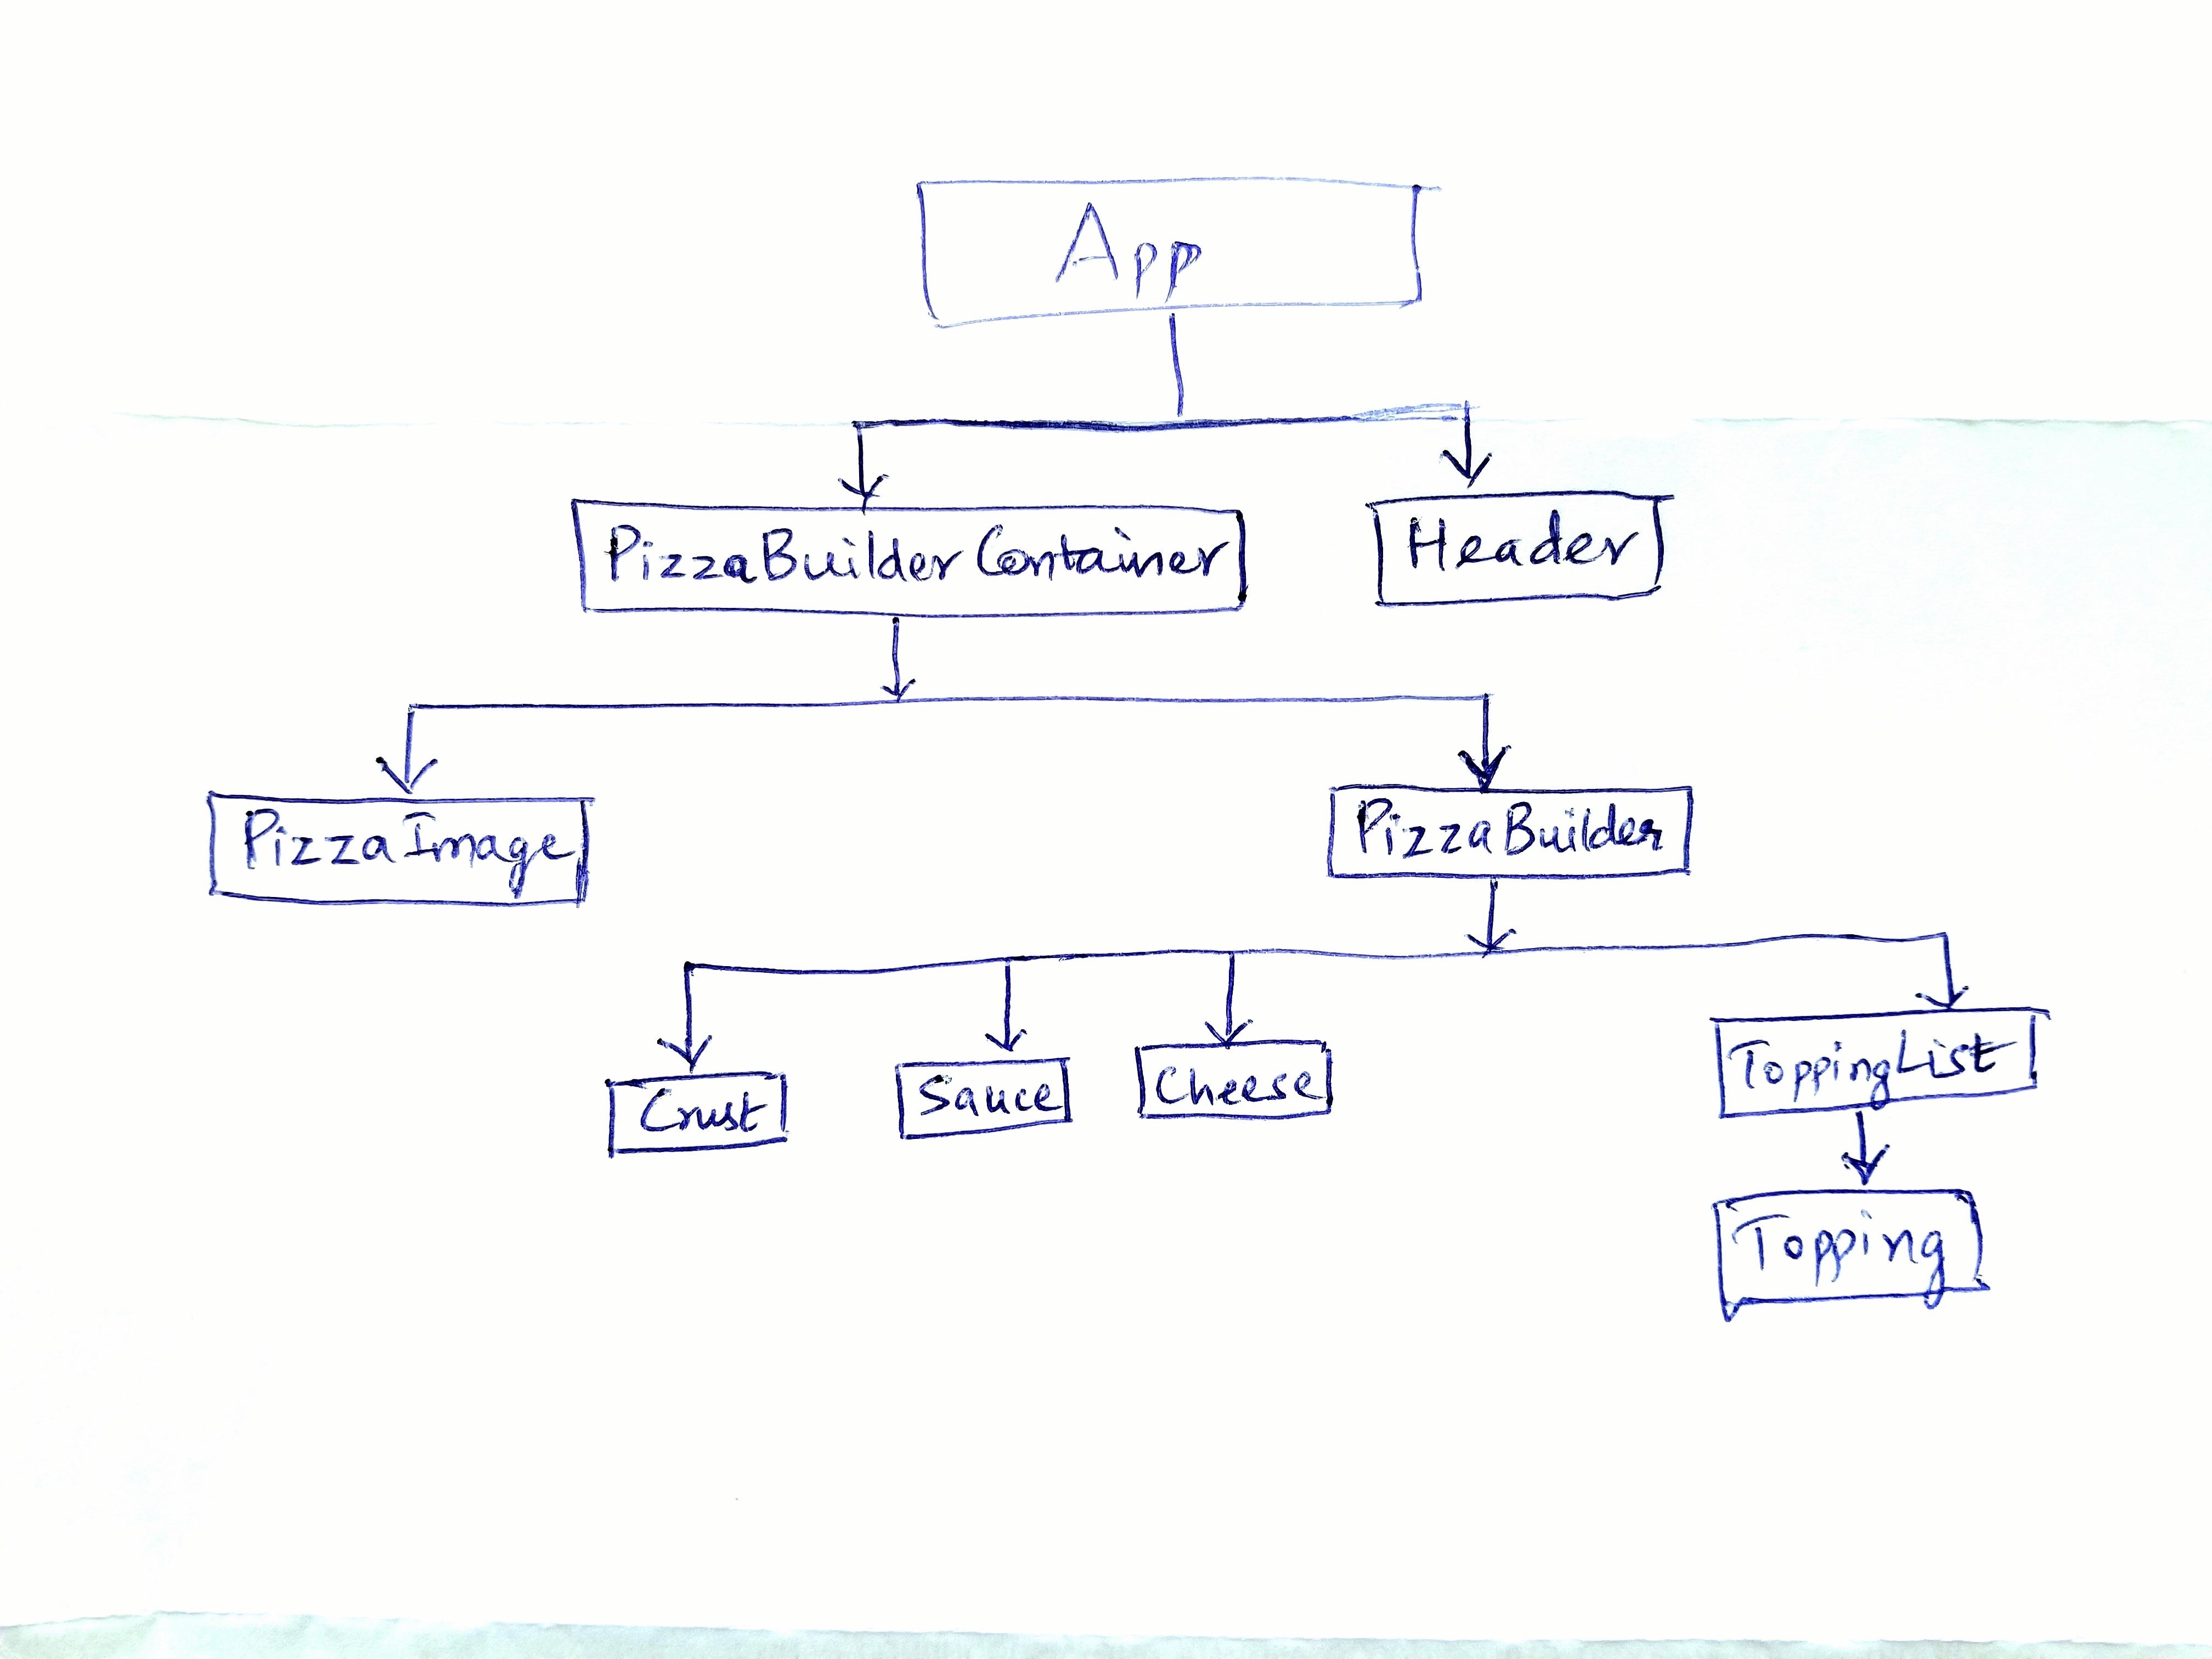 App
PizzaBuilderContainer
Header
PizzaImage
PizzaBuilder
Crust
Sauce
Cheese
ToppingList
Topping